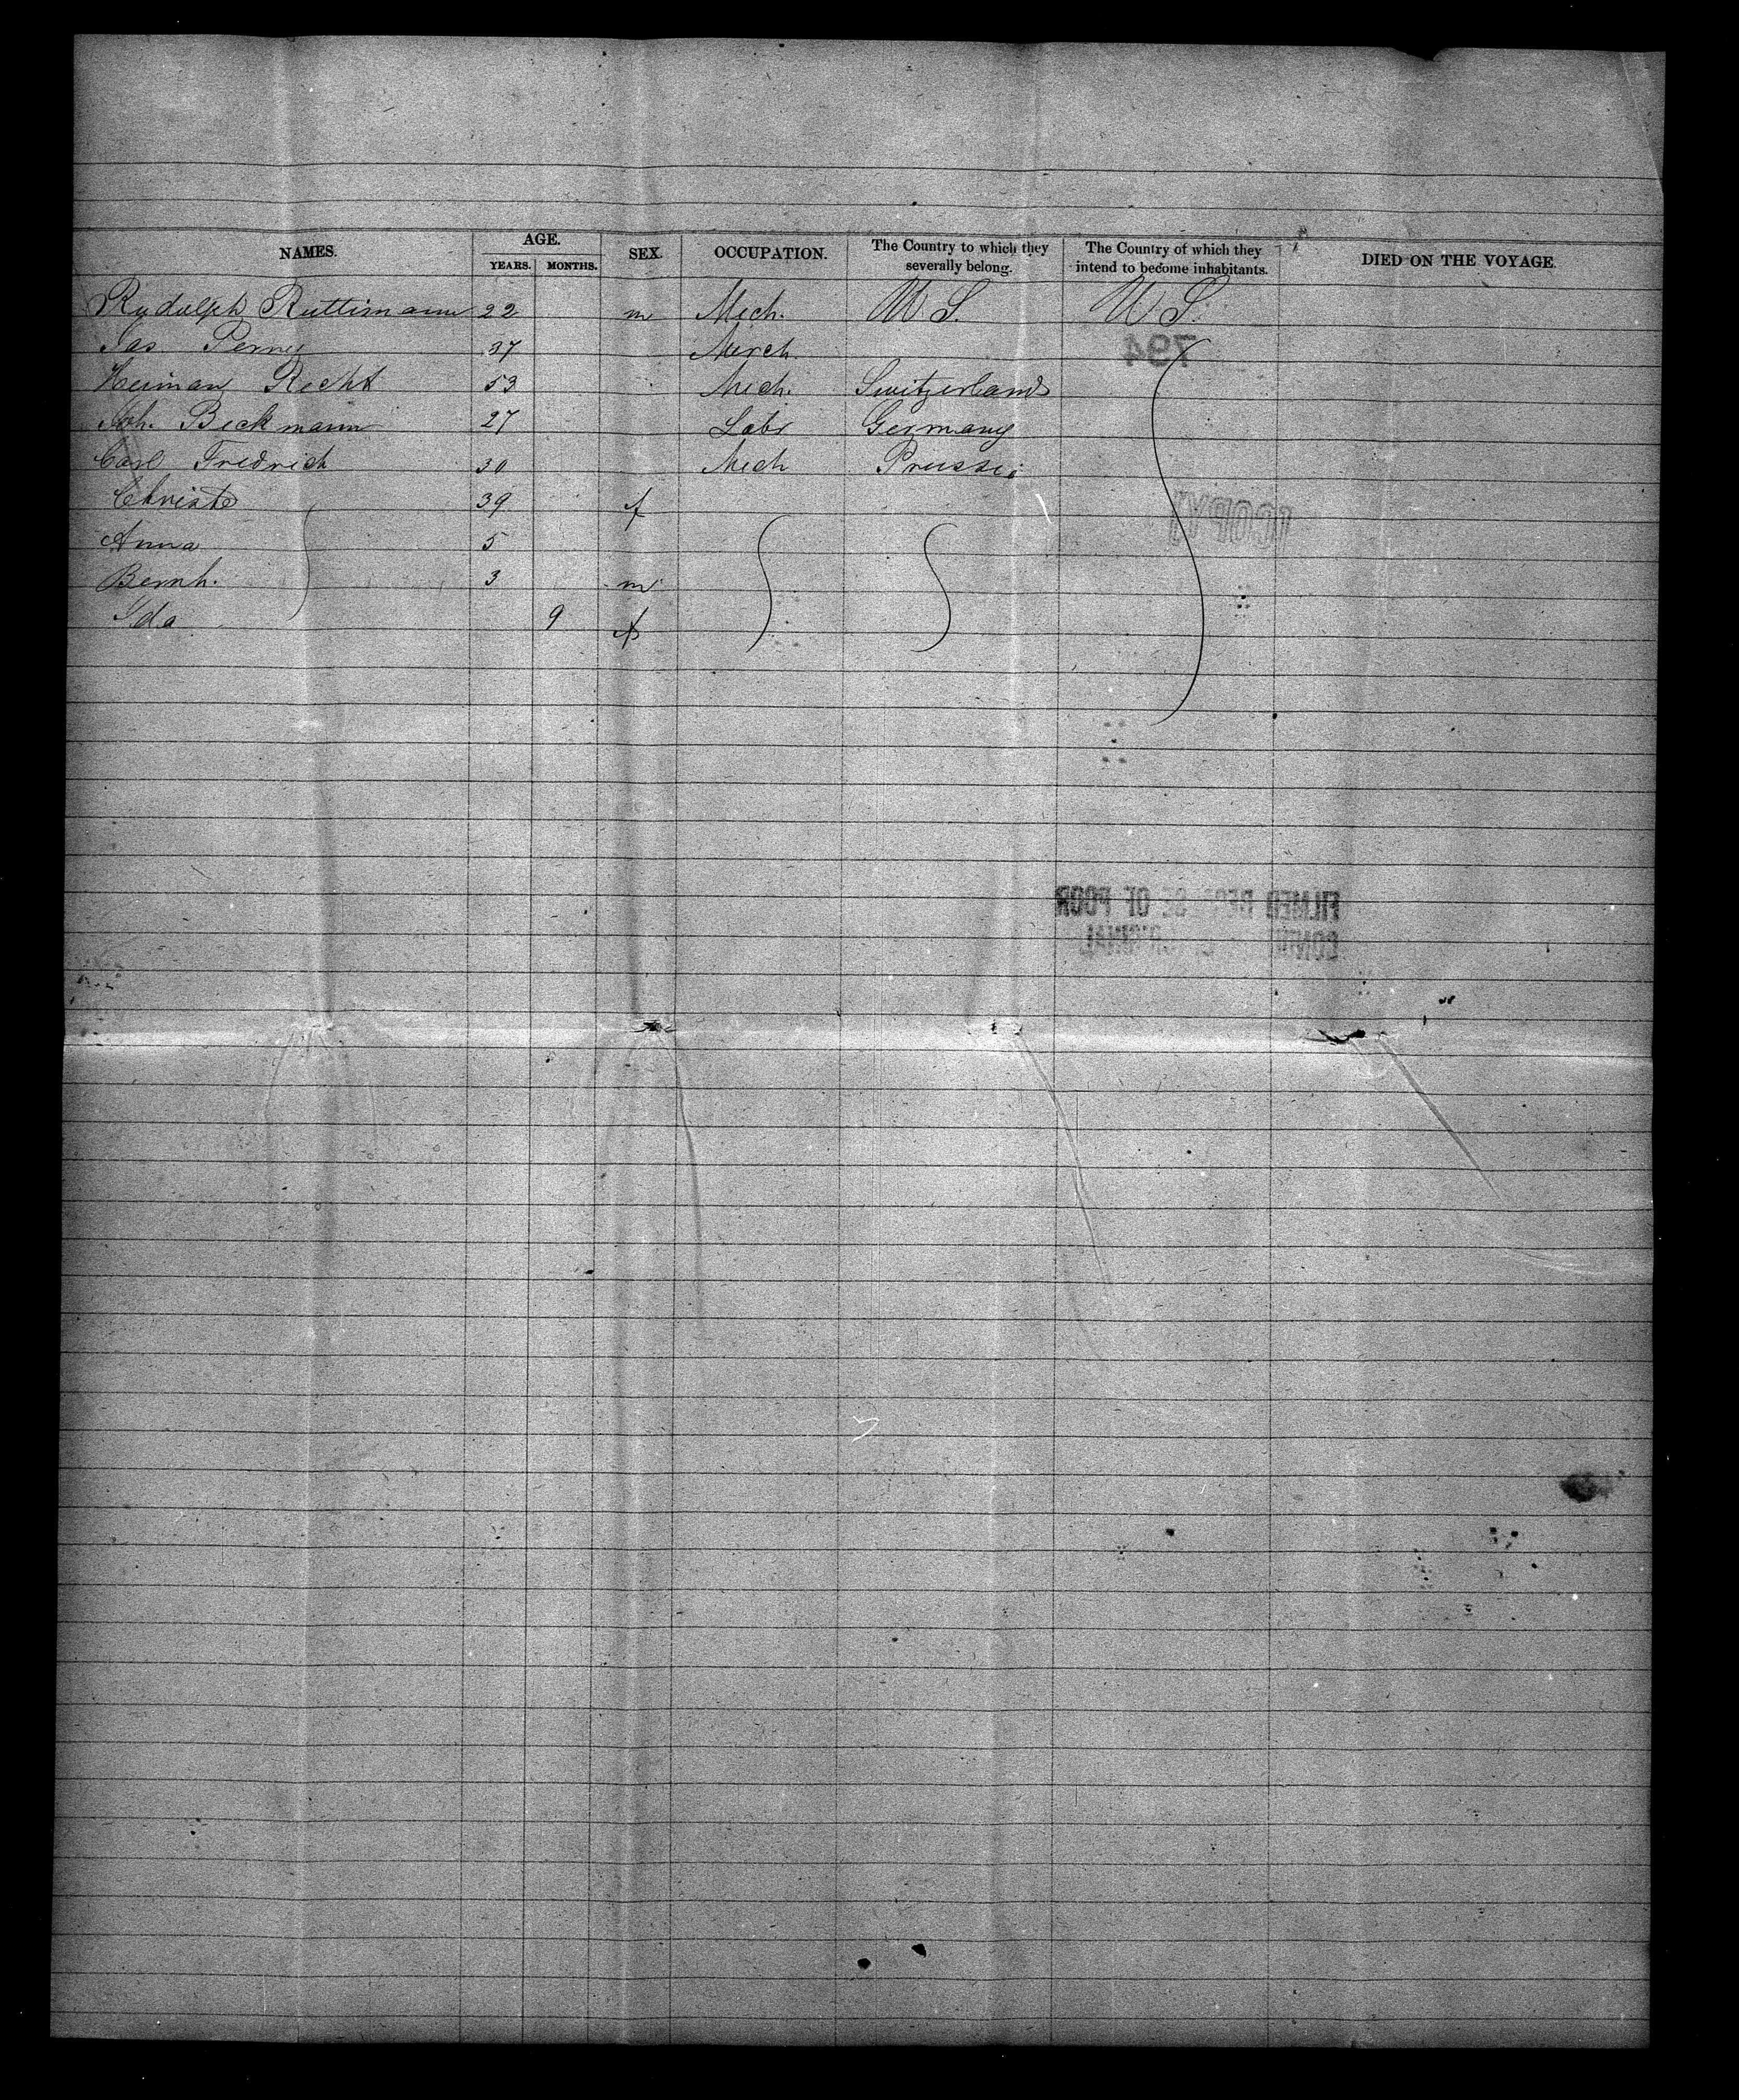 NAMES. AGE. SEX. OCCUPATION. The Country to which they severally belong. The Country of which they intend to become inhabitants. DIED ON THE VOYAGE.
YEARS. MONTHS.
Rudolph Ruttimann 22 m Mech. U S. U S.
Jas Perney 37 Merch.
794
Heiman Recht 53 Mech. Switzerland
Joh. Beckmann 27 Labr Germany
Carl Fredrich 30 Mech Prussi
Christe 39 f
COPY 1
Anna 5
Bernh. 3 m
Ida 9 f
FILMED BECAUSE OF POOR
ORIGINAL